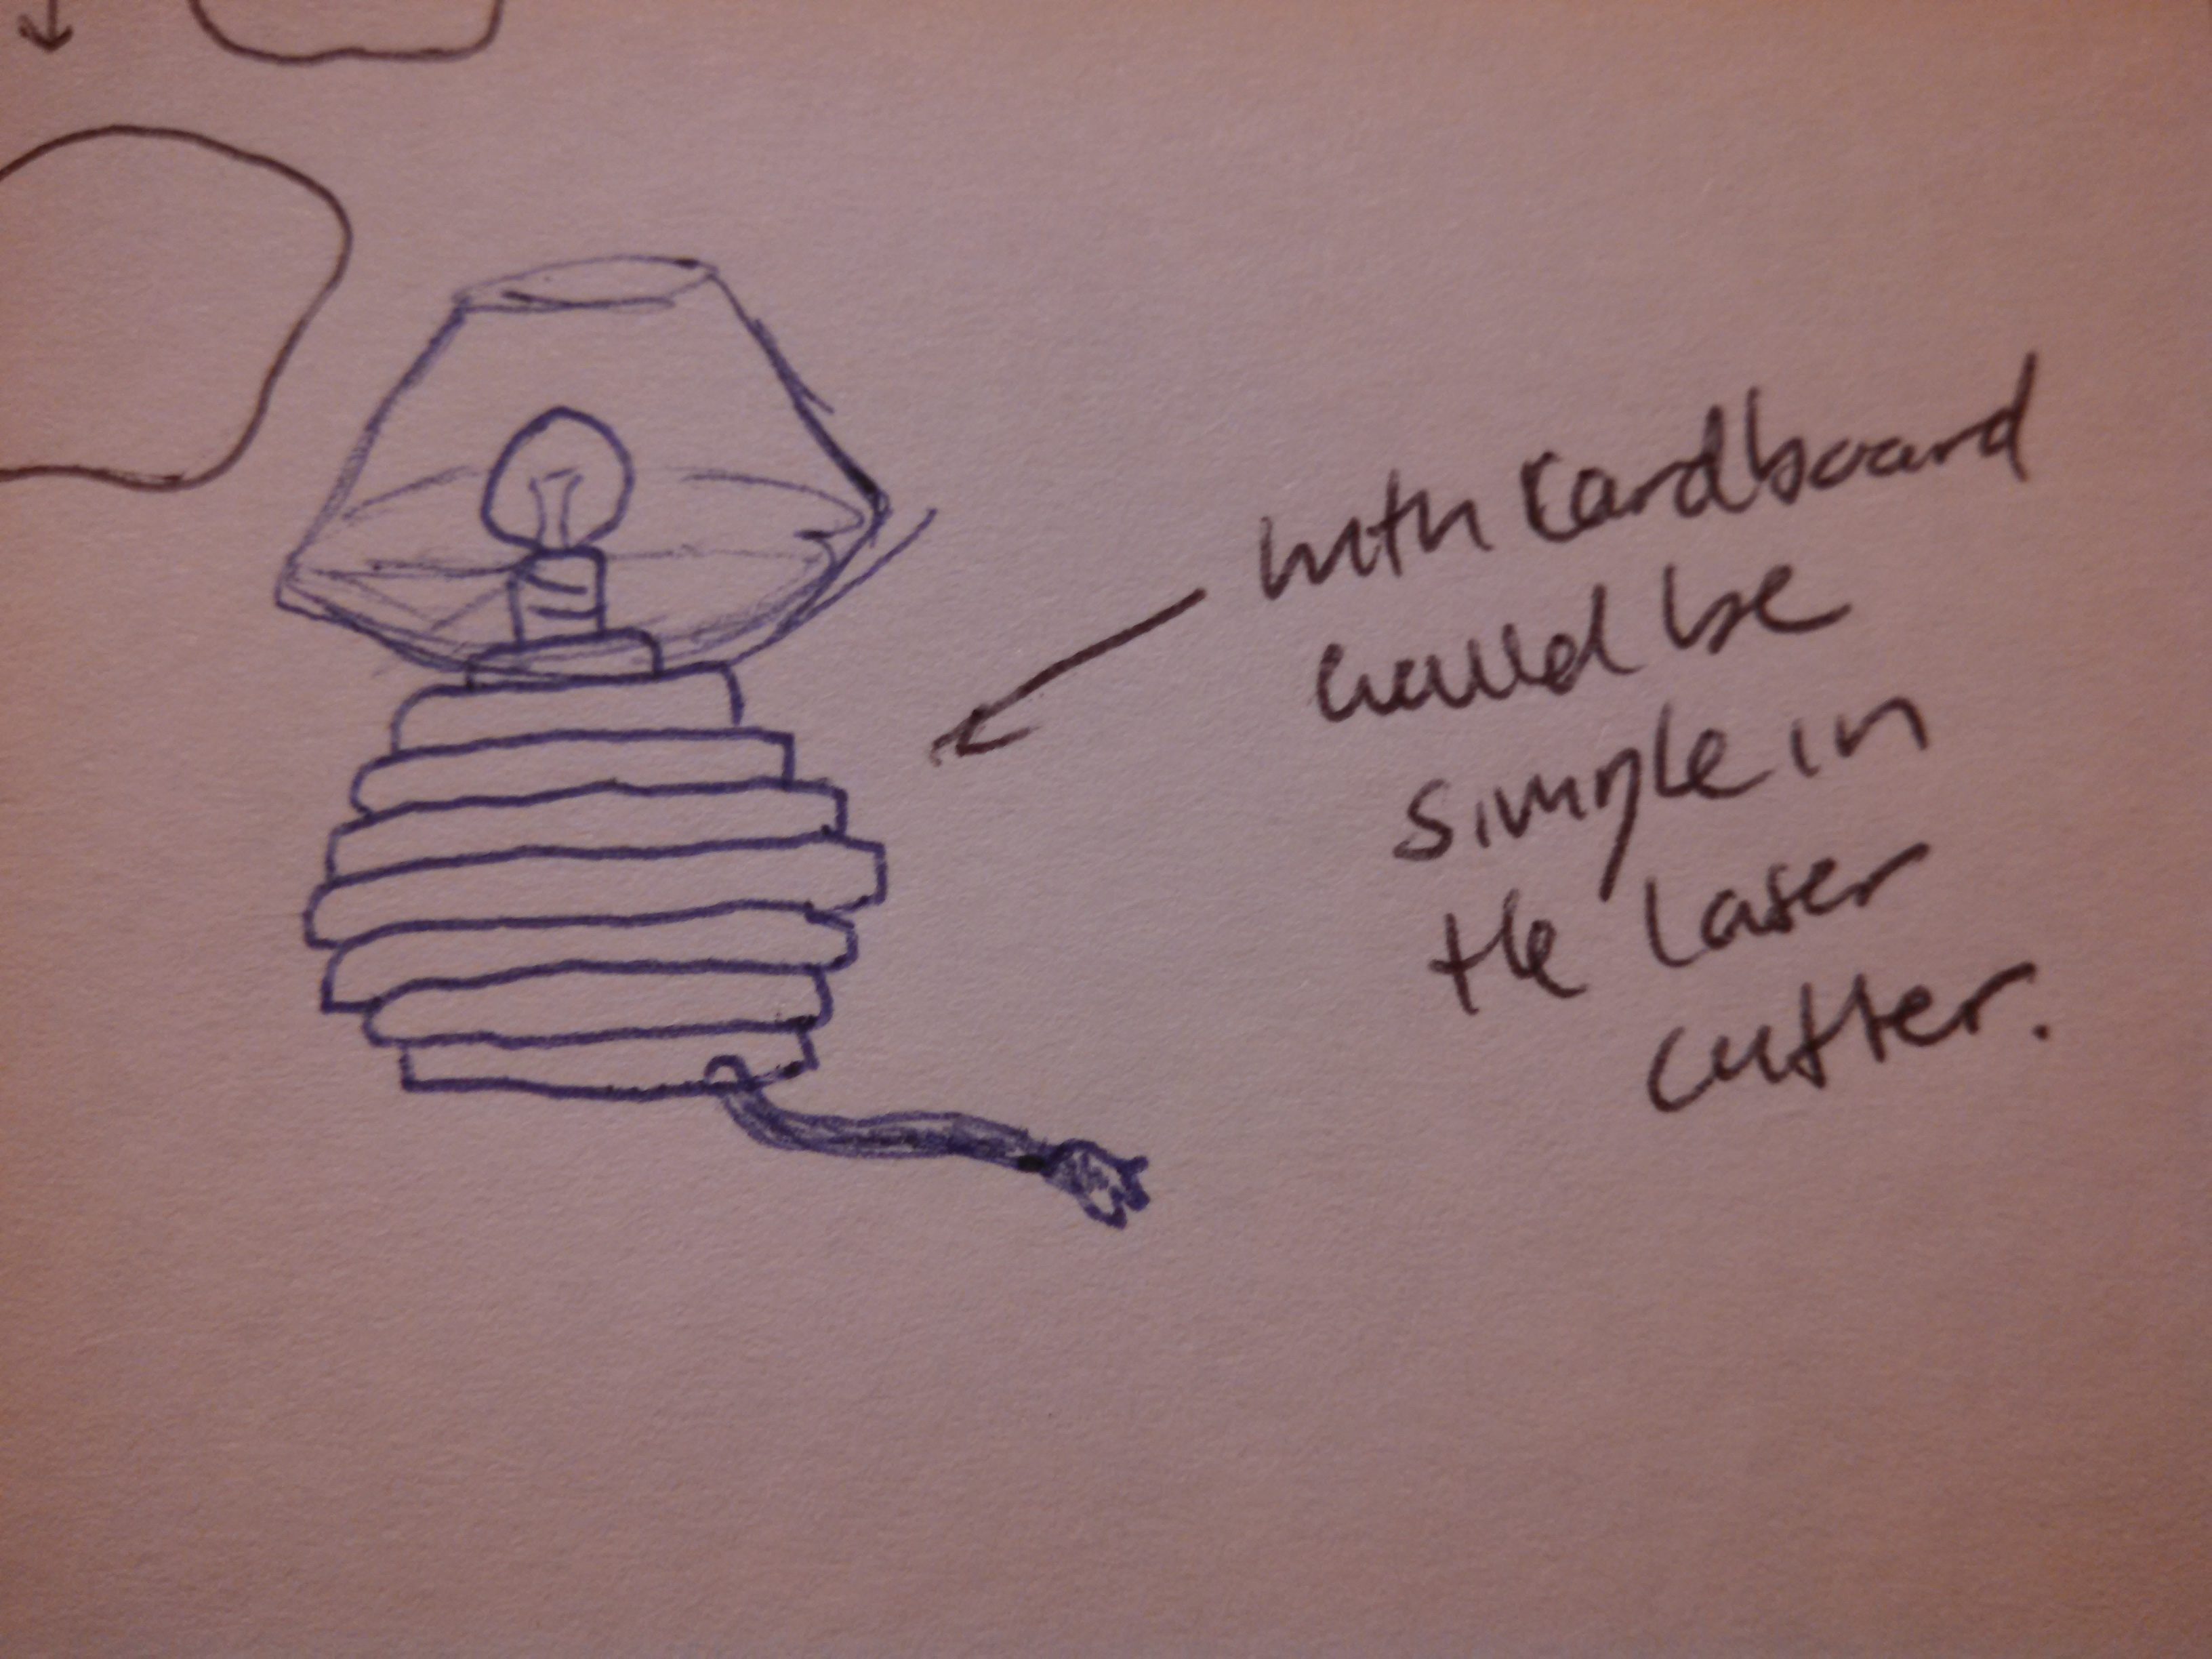 with cardboard
would be
simple in
the laser
cutter.